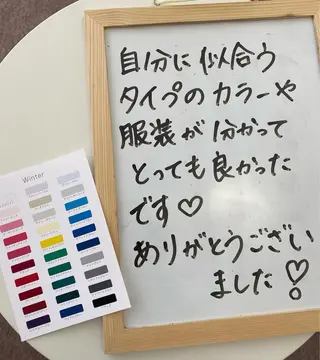 自分に似合う
タイプのカラーや
服装が分かって
とっても良かった
です♡
ありがとうござい
ました♡!
Winter